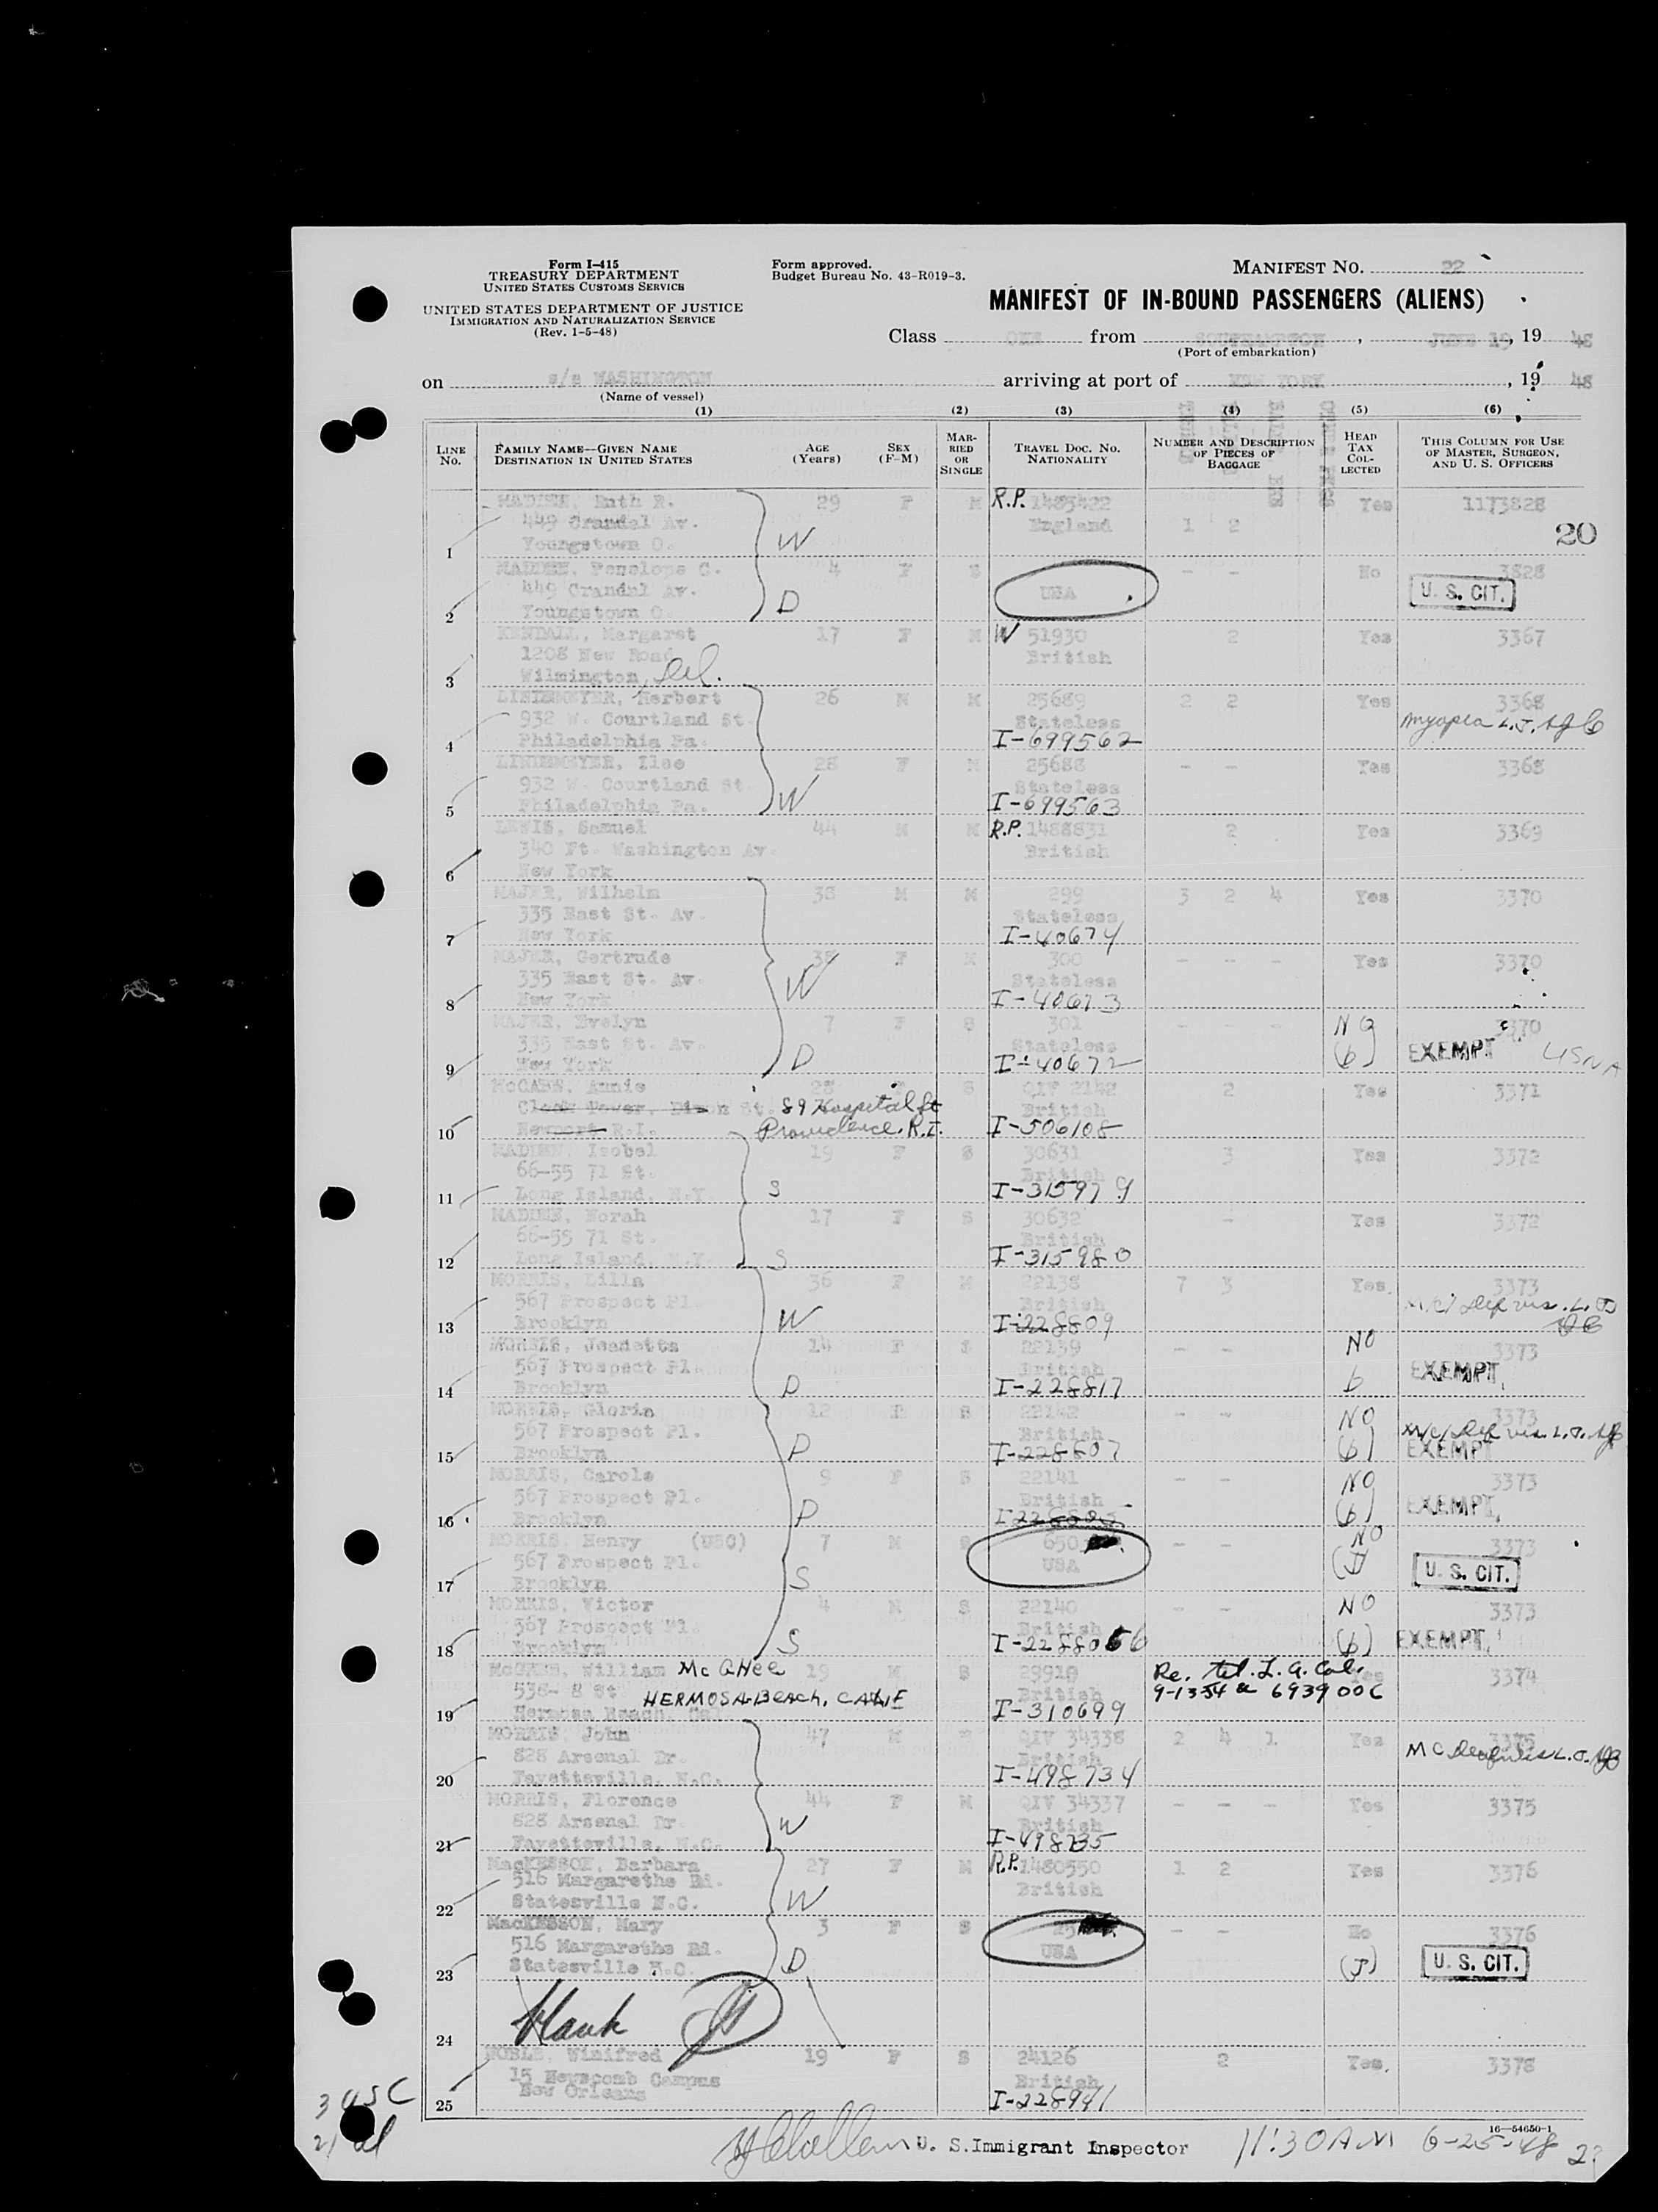 Form I-415
TREASURY DEPARTMENT
UNITED STATES CUSTOMS SERVICE
UNITED STATES DEPARTMENT OF JUSTICE
IMMIGRATION AND NATURALIZATION SERVICE
(Rev. 1-5-48)
Form approved.
Budget Bureau No. 43-R019-3.
MANIFEST NO. 22
MANIFEST OF IN-BOUND PASSENGERS (ALIENS)
Class ONE from SOUTHAMPTON, JUNE 19, 19 48
(Port of embarkation)
on s/s WASHINGTON arriving at port of NEW YORK, 19 48
(Name of vessel)
(1) (2) (3) (4) (5) (6)
LINE No. FAMILY NAME—GIVEN NAME DESTINATION IN UNITED STATES AGE (Years) SEX (F-M) MARRIED OR SINGLE TRAVEL DOC. NO. NATIONALITY NUMBER AND DESCRIPTION OF PIECES OF BAGGAGE HEAD TAX COLLECTED THIS COLUMN FOR USE OF MASTER, SURGEON, AND U. S. OFFICERS
Ruth R. 29 F M R.P. 1485422 Yes 1173828
449 Crandal Av. England 1 2 20
1 Youngstown O. W
Penelope C. 4 F S - - No 3828
449 Crandal Av. USA U. S. CIT.
2 Youngstown O. D
KENDALL, Margaret 17 F M W 51930 2 Yes 3367
1208 New Road British
3 Wilmington, Del.
LINDEMEYER, Herbert 26 M M 25689 2 2 Yes 3368
932 W. Courtland St. Stateless myopia
4 Philadelphia Pa. I-699562
LINDEMEYER, Ilse 28 F M 25688 - - Yes 3368
932 W. Courtland St. Stateless
5 Philadelphia Pa. W I-699563
LEWIS, Samuel 44 M M R.P. 1488831 2 Yes 3369
340 Ft. Washington Av. British
6 New York
MAJER, Wilhelm 38 M M 299 3 2 4 Yes 3370
335 East St. Av. Stateless
7 New York I-40674
MAJER, Gertrude 38 F M 300 - - - Yes 3370
335 East St. Av. Stateless
8 New York W I-40673
MAJER, Evelyn 7 F S 301 - - - NO 3370
335 East St. Av. Stateless (6) EXEMPT USNA
9 New York D I-40672
Annie 28 F S QIV 2142 2 Yes 3371
89 Hospital St British
10 Newport R.I. Providence. R.I. I-506108
MADDEN, Isobel 19 F S 30631 3 Yes 3372
66-55 71 St. British
11 Long Island, N.Y. S I-315979
MADDEN, Norah 17 F S 30632 - Yes 3372
66-55 71 St. British
12 Long Island, N.Y. S I-315980
MORRIS, Lilla 36 F M 22138 7 3 Yes. 3373
567 Prospect Pl. British
13 Brooklyn W I-228809
MORRIS, Jeanetta 14 F S 22139 - - NO 3373
567 Prospect Pl. British EXEMPT
14 Brooklyn D I-228817 6
MORRIS, Gloria 12 F S 22142 - - NO 3373
567 Prospect Pl. British
15 Brooklyn D I-228807 (6) EXEMPT
MORRIS, Carole 9 F S 22141 - - NO 3373
567 Prospect Pl. British (6) EXEMPT
16 Brooklyn D
MORRIS, Henry (USC) 7 M S - - NO 3373
567 Prospect Pl. USA (J) U. S. CIT.
17 Brooklyn S
MORRIS, Victor 4 M S 22140 - - NO 3373
567 Prospect Pl. British
18 Brooklyn S (6) EXEMPT
William McGHee 19 M S 29910 Re. tel. L.A. Cal. Yes 3374
538- 8 St HERMOSA-Beach, CALIF British 9-1354 6939006
19 Hermosa Beach, Cal I-310699
MORRIS, John 47 M QIV 34338 2 4 1 Yes 3375
828 Arsenal Dr. British
20 Fayetteville, N.C. I-498734
MORRIS, Florence 44 F M QIV 34337 - - - Yes 3375
828 Arsenal Dr British
21 Fayetteville, N.C. W I-498735
MacKESSON, Barbara 27 F M R.P. 1480550 1 2 Yes 3376
516 Margarethe Rd. British
22 Statesville N.C. W
MacKESSON, Mary 3 F S - - No 3376
516 Margarethe Rd. USA
23 Statesville N.C. D (J) U. S. CIT.
24 blank
NOBLE, Winifred 19 F S 24126 2 Yes. 3378
15 Newscomb Campus British
25 New Orleans I-228941
3 USC
21 al
U. S. Immigrant Inspector 11:30 AM 6-25-48
16—54650-1